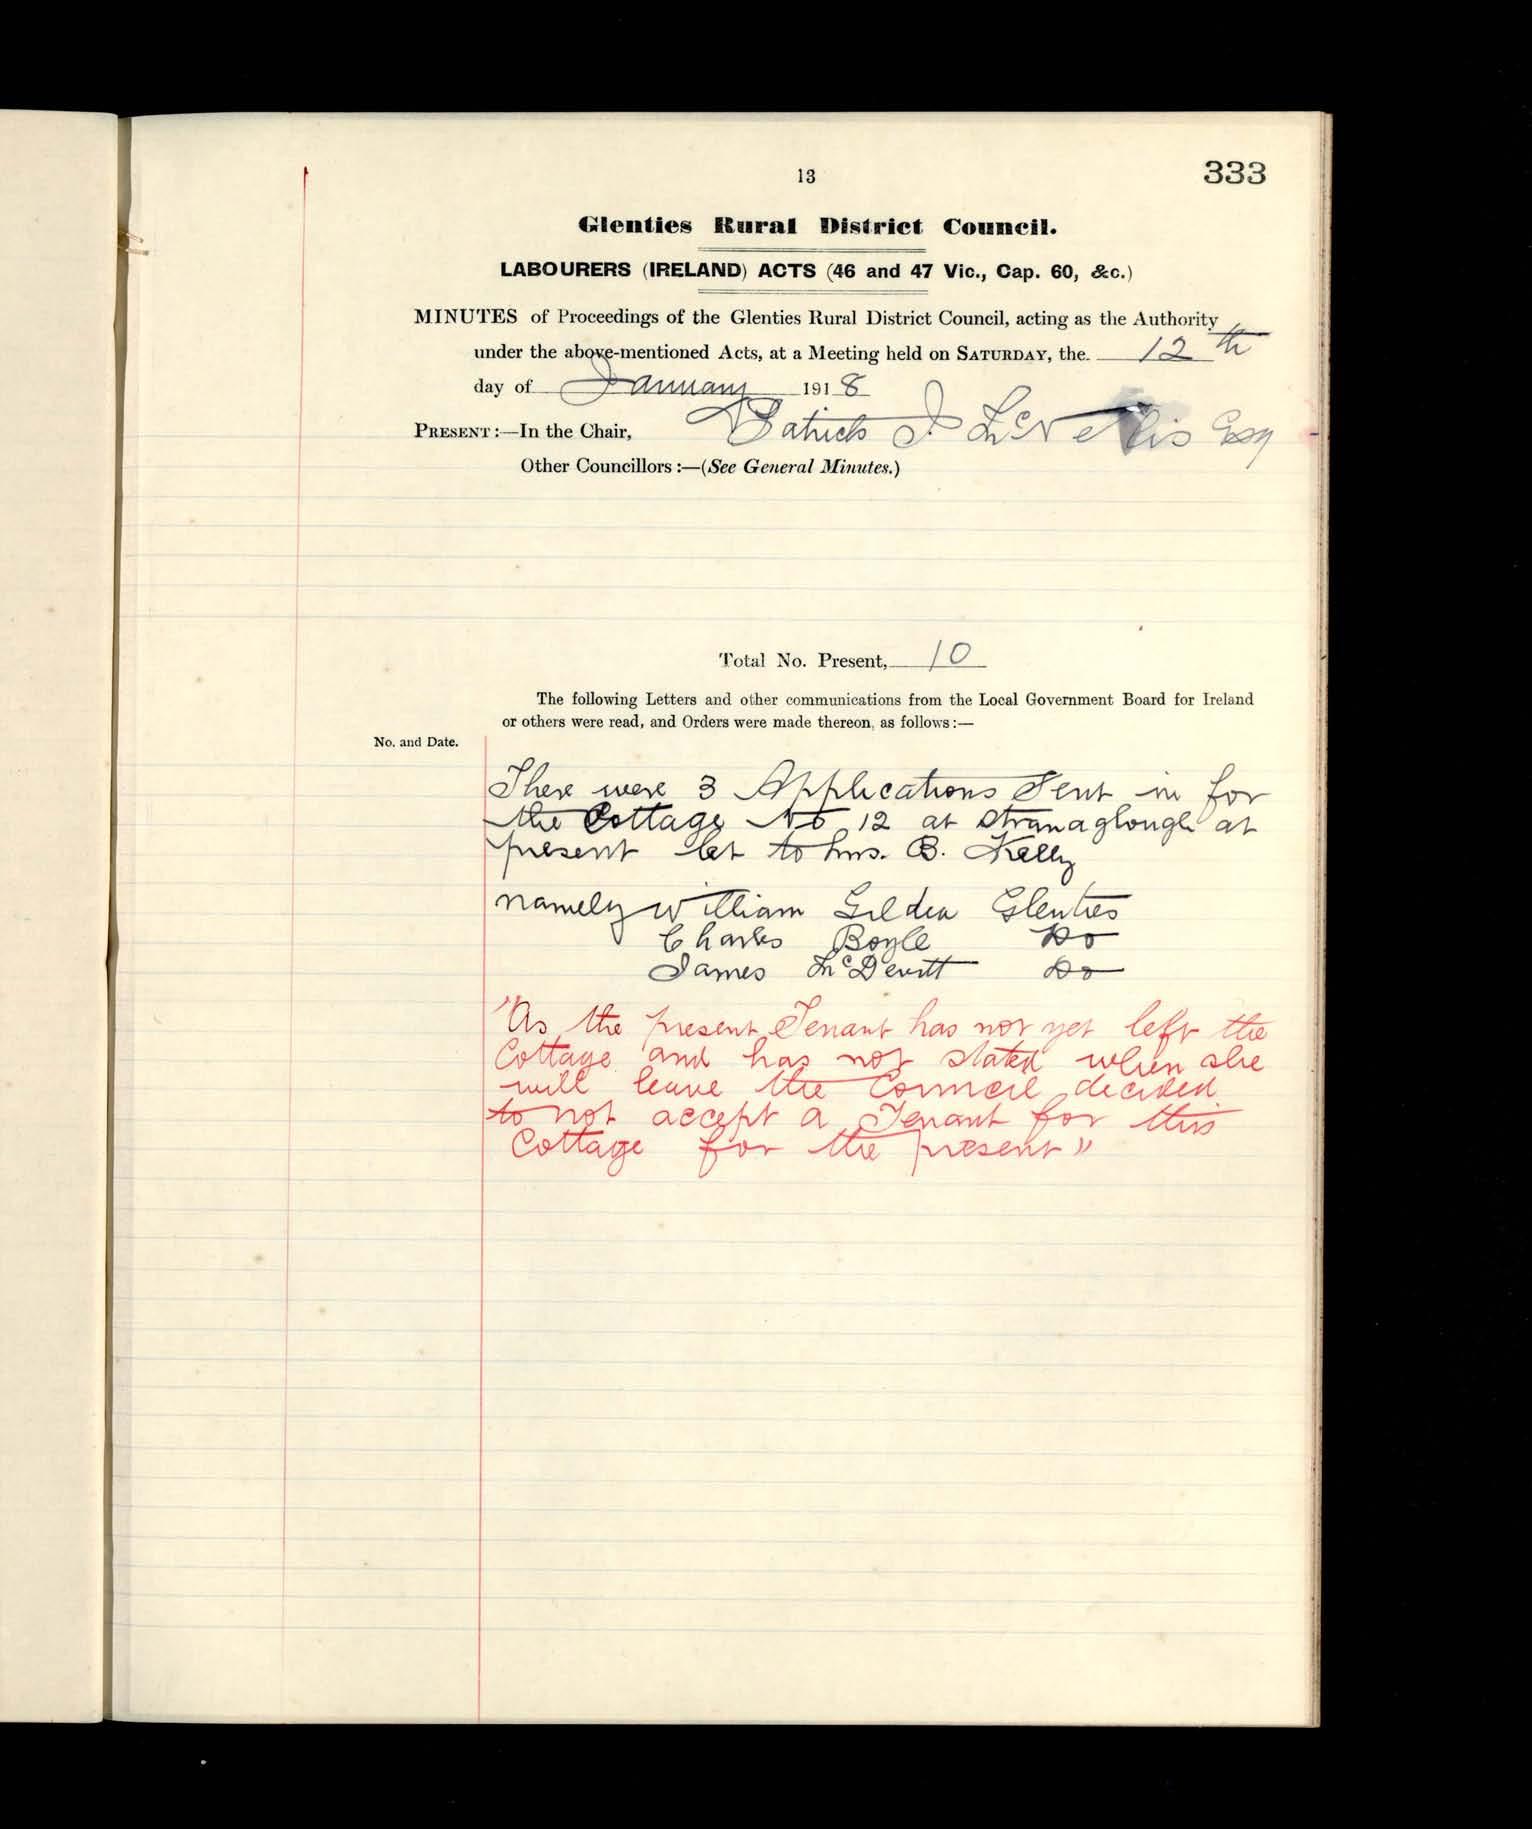 13
333
Glenties Rural District Council.
LABOURERS (IRELAND) ACTS (46 and 47 Vic., Cap. 60, &c.)
MINUTES of Proceedings of the Glenties Rural District Council, acting as the Authority
under the above-mentioned Acts, at a Meeting held on SATURDAY, the 12th
day of January 1918
PRESENT:—In the Chair, Patrick J. McNelis Esq
Other Councillors:—(See General Minutes.)
Total No. Present, 10
The following Letters and other communications from the Local Government Board for Ireland
or others were read, and Orders were made thereon, as follows:—
No. and Date.
There were 3 Applications Sent in for
the Cottage No 12 at Stranaglough at
present let to Mrs. B. Kelly
namely William Gildea Glenties
Charles Boyle Do
James McDevitt Do
"As the present Tenant has not yet left the
Cottage and has not stated when she
will leave the Council decided
to not accept a Tenant for this
Cottage for the present"